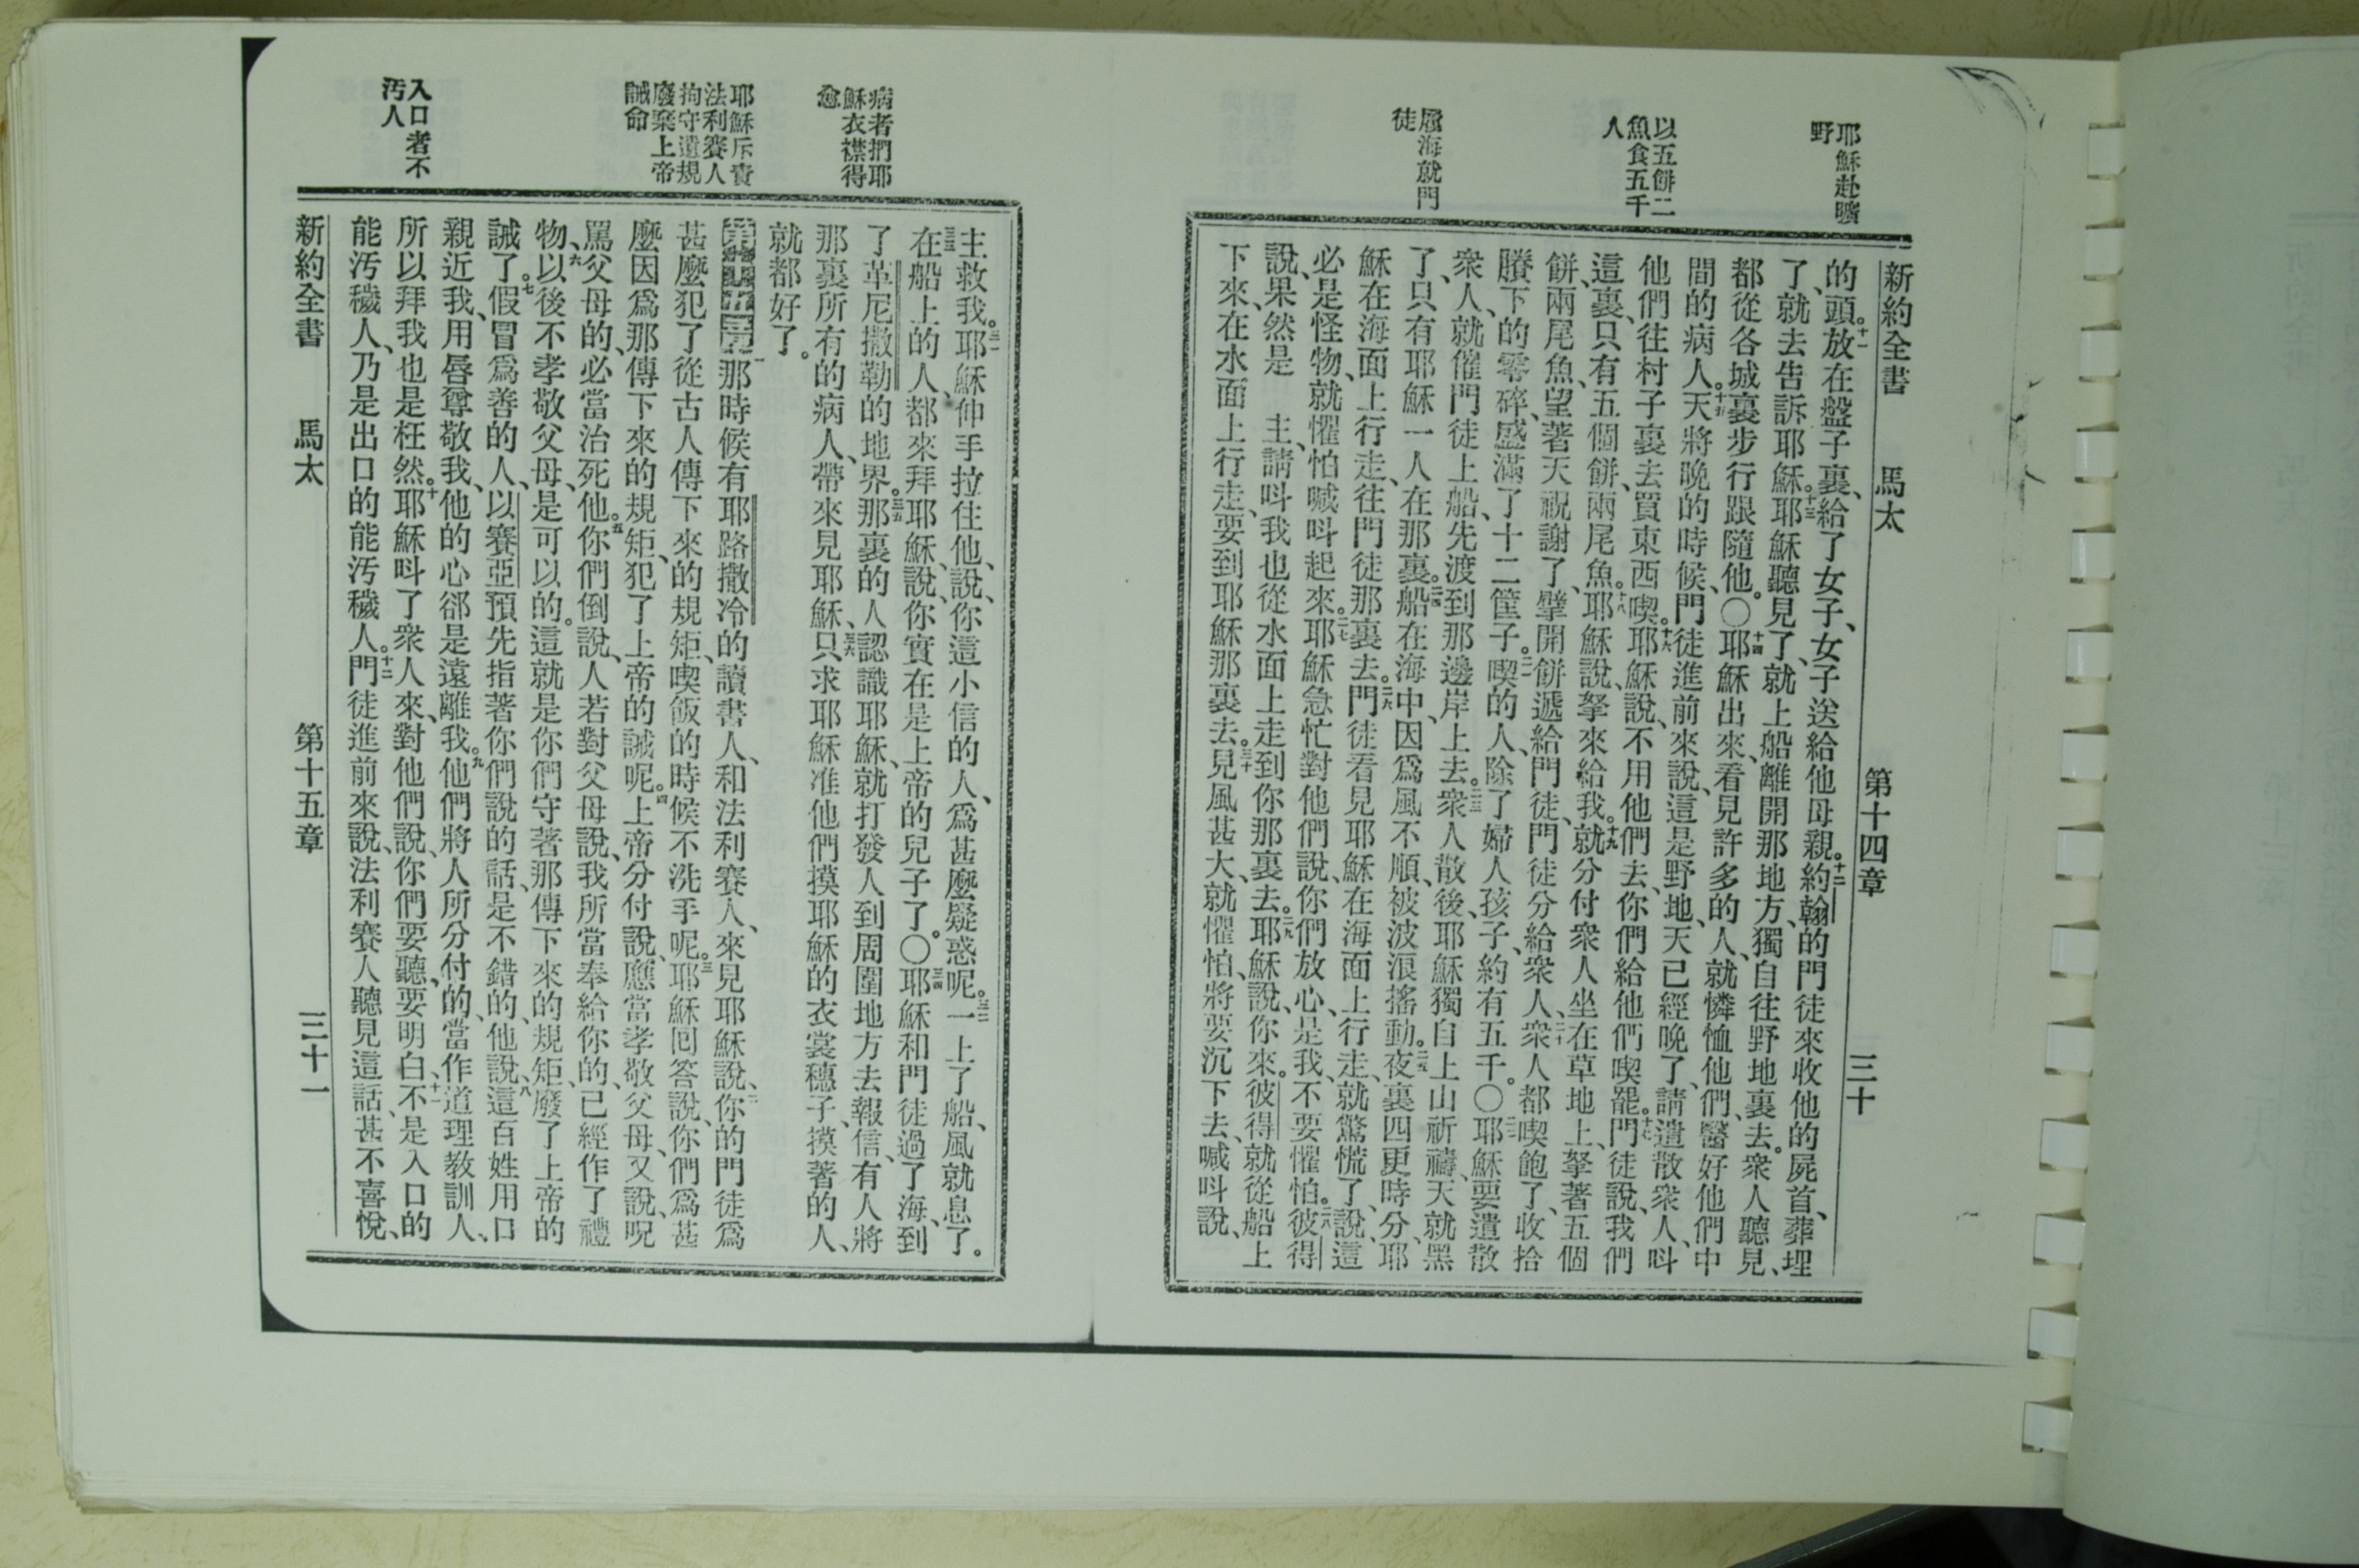 耶穌赴曠
野
以五餅二
魚食五千
人
履海就門
徒
新約全書 馬太 第十四章 三十
的頭。十一放在盤子裏、給了女子、女子送給他母親。十二約翰的門徒來收他的屍首、葬埋
了、就去告訴耶穌。十三耶穌聽見了、就上船離開那地方、獨自往野地裏去。衆人聽見、
都從各城裏步行跟隨他。〇十四耶穌出來、看見許多的人、就憐恤他們、醫好他們中
間的病人。十五天將晚的時候、門徒進前來說、這是野地、天已經晚了、請遣散衆人、呌
他們往村子裏去、買東西喫。十六耶穌說、不用他們去、你們給他們喫罷。十七門徒說、我們
這裏、只有五個餅、兩尾魚。十八耶穌說、拏來給我。十九就分付衆人坐在草地上、拏著五個
餅、兩尾魚、望著天祝謝了、擘開餅遞給門徒、門徒分給衆人、二十衆人都喫飽了、收拾
賸下的零碎、盛滿了十二筐子。二一喫的人、除了婦人孩子、約有五千。〇二二耶穌要遣散
衆人、就催門徒上船、先渡到那邊岸上去。二三衆人散後、耶穌獨自上山祈禱、天就黑
了、只有耶穌一人在那裏。二四船在海中、因爲風不順、被波浪搖動。二五夜裏四更時分、耶
穌在海面上行走、往門徒那裏去。二六門徒看見耶穌在海面上行走、就驚慌了、說、這
必是怪物、就懼怕喊呌起來。二七耶穌急忙對他們說、你們放心、是我、不要懼怕。二八彼得
說、果然是 主、請呌我也從水面上走到你那裏去。二九耶穌說、你來。彼得就從船上
下來、在水面上行走、要到耶穌那裏去。三十見風甚大、就懼怕、將要沉下去、喊呌說、
病者捫耶
穌衣襟得
愈
耶穌斥責
法利賽人
拘守遺規
廢棄上帝
誡命
入口者不
汚人
主救我。三一耶穌伸手拉住他、說、你這小信的人、爲甚麼疑惑呢。三二一上了船、風就息了。
三三在船上的人、都來拜耶穌、說、你實在是上帝的兒子了。〇三四耶穌和門徒過了海、到
了革尼撒勒的地界。三五那裏的人認識耶穌、就打發人到周圍地方去報信、有人將
那裏所有的病人、帶來見耶穌、三六只求耶穌准他們摸耶穌的衣裳穗子、摸著的人、
就都好了。
第十五章一那時候有耶路撒冷的讀書人、和法利賽人、來見耶穌說、二你的門徒爲
甚麼犯了從古人傳下來的規矩、喫飯的時候不洗手呢。三耶穌回答說、你們爲甚
麼因爲那傳下來的規矩、犯了上帝的誡呢。四上帝分付說、應當孝敬父母、又說、呪
罵父母的、必當治死他。五你們倒說、人若對父母說、我所當奉給你的、已經作了禮
物、六以後不孝敬父母、是可以的。這就是你們守著那傳下來的規矩、廢了上帝的
誡了。七假冒爲善的人、以賽亞預先指著你們說的話、是不錯的、他說、八這百姓用口
親近我、用唇尊敬我、他的心郤是遠離我。九他們將人所分付的、當作道理教訓人、
所以拜我也是枉然。十耶穌呌了衆人來、對他們說、你們要聽、要明白、十一不是入口的
能汚穢人、乃是出口的能汚穢人。十二門徒進前來說、法利賽人聽見這話、甚不喜悅、
新約全書 馬太 第十五章 三十一